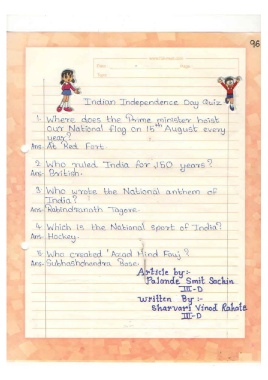 96
Date : Page :
Indian Independence Day Quiz
1. Where does the Prime minister hoist
our National flag on 15th August every
year?
Ans. At Red Fort.
2. Who ruled India for 150 years?
Ans- British.
3. Who wrote the National anthem of
India?
Ans- Rabindranath Tagore.
4. Which is the National sport of India?
Ans- Hockey.
5. Who created 'Azad Hind Fauj'?
Ans- Subhashchendra Bose.
Article by :-
Palonde Smit Sachin
III-D
Written By :-
Sharvari Vinod Rahate
III-D